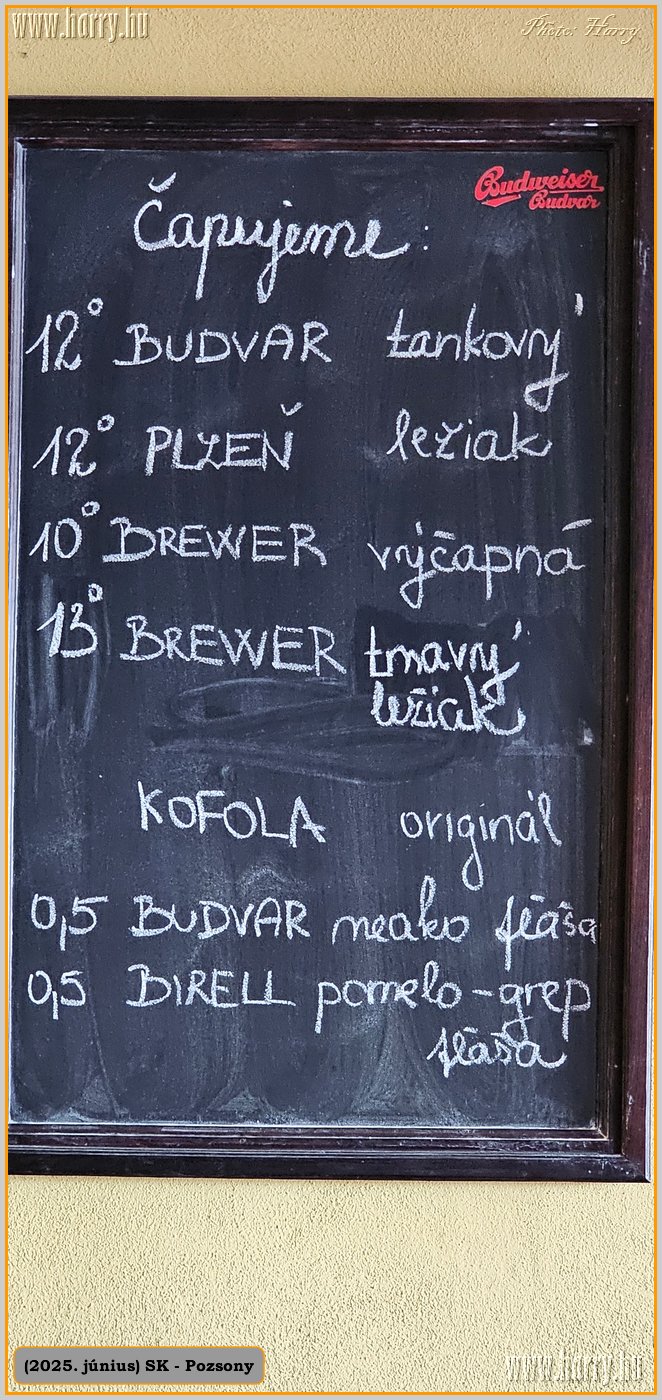 www.harry.hu
Photo: Harry
Budweiser
Budvar
Čapujeme:
12° BUDVAR tankový
12° PLZEŇ ležiak
10° BREWER výčapná
13° BREWER tmavý
ležiak
KOFOLA originál
0,5 BUDVAR nealko fľáša
0,5 BIRELL pomelo-grep
fľáša
(2025. június) SK - Pozsony
www.harry.hu